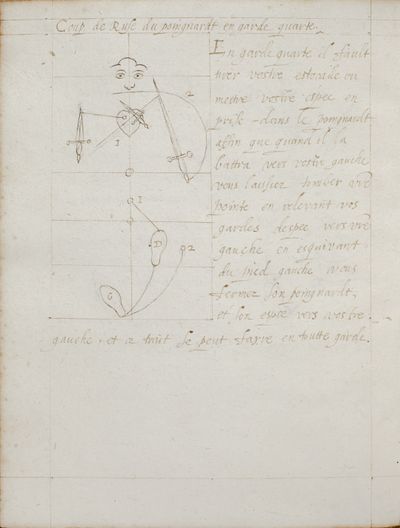 Coup de Ruse du poingnardt en garde quarte.
En garde quarte il fault
tirer vostre estocade ou
mettre vostre espee en
prise dans le pongnardt
affin que quand il la
battra vers vostre gauche
vous laissiez tomber vre
pointe en relevant vos
gardes despee vers vre
gauche en esquivant
du pied gauche a vous
son poingnardt,
et son espee vers vostre
gauche, et a tout se peut faire en toutte garde.
2
1
1
D
2
G